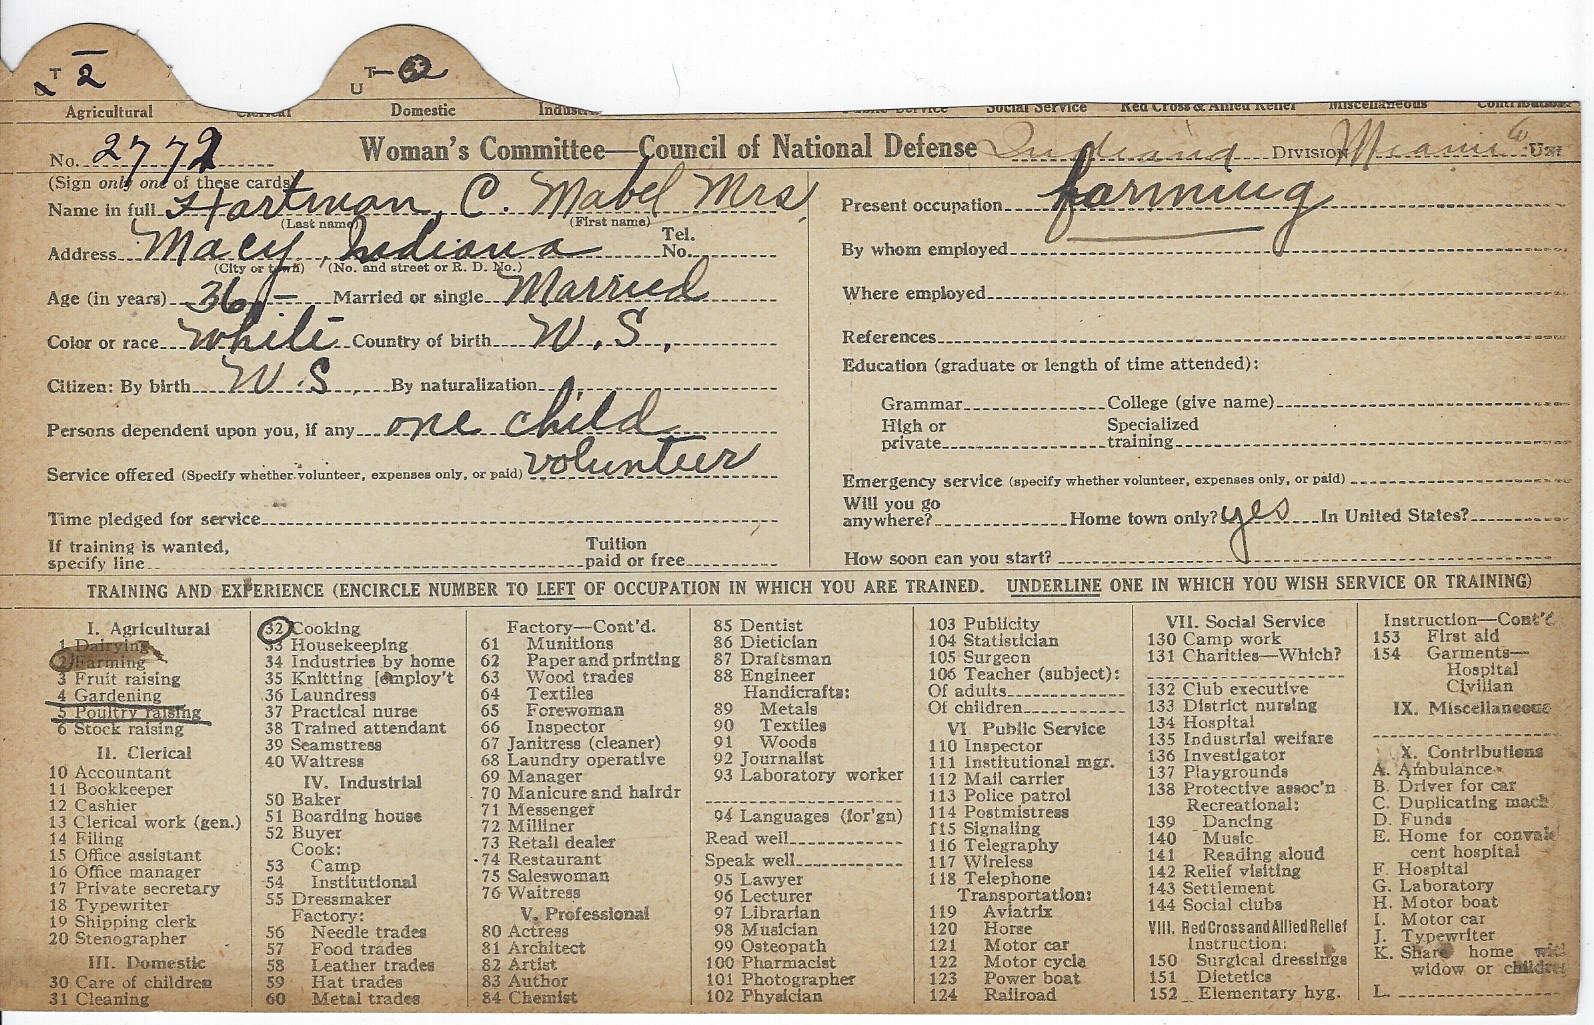 T 2
T 32
U
Agricultural Clerical Domestic Industrial Public Service Social Service Red Cross & Allied Relief Miscellaneous Contributions
No. 2772 Woman's Committee—Council of National Defense Indiana DIVISION Miami UNIT
(Sign only one of these cards)
Name in full Hartman, C. Mabel Mrs.
(Last name) (First name)
Address Macy, Indiana Tel. No.
(City or town) (No. and street or R. D. No.)
Age (in years) 36 — Married or single Married
Color or race White Country of birth U. S.
Citizen: By birth U. S. By naturalization
Persons dependent upon you, if any one child
Service offered (Specify whether volunteer, expenses only, or paid) volunteer
Time pledged for service
If training is wanted, specify line Tuition paid or free
Present occupation farming
By whom employed
Where employed
References
Education (graduate or length of time attended):
Grammar College (give name)
High or private Specialized training
Emergency service (specify whether volunteer, expenses only, or paid)
Will you go anywhere? Home town only? yes In United States?
How soon can you start?
TRAINING AND EXPERIENCE (ENCIRCLE NUMBER TO LEFT OF OCCUPATION IN WHICH YOU ARE TRAINED. UNDERLINE ONE IN WHICH YOU WISH SERVICE OR TRAINING)
I. Agricultural
1 Dairying
2 Farming
3 Fruit raising
4 Gardening
5 Poultry raising
6 Stock raising
II. Clerical
10 Accountant
11 Bookkeeper
12 Cashier
13 Clerical work (gen.)
14 Filing
15 Office assistant
16 Office manager
17 Private secretary
18 Typewriter
19 Shipping clerk
20 Stenographer
III. Domestic
30 Care of children
31 Cleaning
32 Cooking
33 Housekeeping
34 Industries by home
35 Knitting [employ't
36 Laundress
37 Practical nurse
38 Trained attendant
39 Seamstress
40 Waitress
IV. Industrial
50 Baker
51 Boarding house
52 Buyer
Cook:
53 Camp
54 Institutional
55 Dressmaker
Factory:
56 Needle trades
57 Food trades
58 Leather trades
59 Hat trades
60 Metal trades
Factory—Cont'd.
61 Munitions
62 Paper and printing
63 Wood trades
64 Textiles
65 Forewoman
66 Inspector
67 Janitress (cleaner)
68 Laundry operative
69 Manager
70 Manicure and hairdr
71 Messenger
72 Milliner
73 Retail dealer
74 Restaurant
75 Saleswoman
76 Waitress
V. Professional
80 Actress
81 Architect
82 Artist
83 Author
84 Chemist
85 Dentist
86 Dietician
87 Draftsman
88 Engineer
Handicrafts:
89 Metals
90 Textiles
91 Woods
92 Journalist
93 Laboratory worker
94 Languages (for'gn)
Read well
Speak well
95 Lawyer
96 Lecturer
97 Librarian
98 Musician
99 Osteopath
100 Pharmacist
101 Photographer
102 Physician
103 Publicity
104 Statistician
105 Surgeon
106 Teacher (subject):
Of adults
Of children
VI. Public Service
110 Inspector
111 Institutional mgr.
112 Mail carrier
113 Police patrol
114 Postmistress
115 Signaling
116 Telegraphy
117 Wireless
118 Telephone
Transportation:
119 Aviatrix
120 Horse
121 Motor car
122 Motor cycle
123 Power boat
124 Railroad
VII. Social Service
130 Camp work
131 Charities—Which?
132 Club executive
133 District nursing
134 Hospital
135 Industrial welfare
136 Investigator
137 Playgrounds
138 Protective assoc'n
Recreational:
139 Dancing
140 Music
141 Reading aloud
142 Relief visiting
143 Settlement
144 Social clubs
VIII. Red Cross and Allied Relief
Instruction:
150 Surgical dressings
151 Dietetics
152 Elementary hyg.
Instruction—Cont'd
153 First aid
154 Garments—
Hospital
Civilian
IX. Miscellaneous
X. Contributions
A. Ambulance
B. Driver for car
C. Duplicating mach
D. Funds
E. Home for convales
cent hospital
F. Hospital
G. Laboratory
H. Motor boat
I. Motor car
J. Typewriter
K. Share home with
widow or children
L.